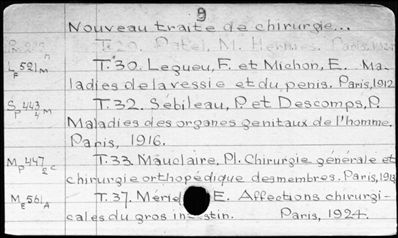 9
Nouveau traité de chirurgie...
T. 29. Patel, M. Hernies. Paris, 1924
LF521M T. 30. Legueu, F. et Michon, E. Ma-
ladies de la vessie et du penis. Paris, 1912
SP443 4M T. 32. Sebileau, P. et Descomps, P.
Maladies des organes genitaux de l'homme.
Paris, 1916.
MP447 2C T. 33. Mauclaire, Pl. Chirurgie générale et
chirurgie orthopédique des membres. Paris, 1913
ME561A T. 37. E. Affections chirurgi-
cales du gros Paris, 1924.